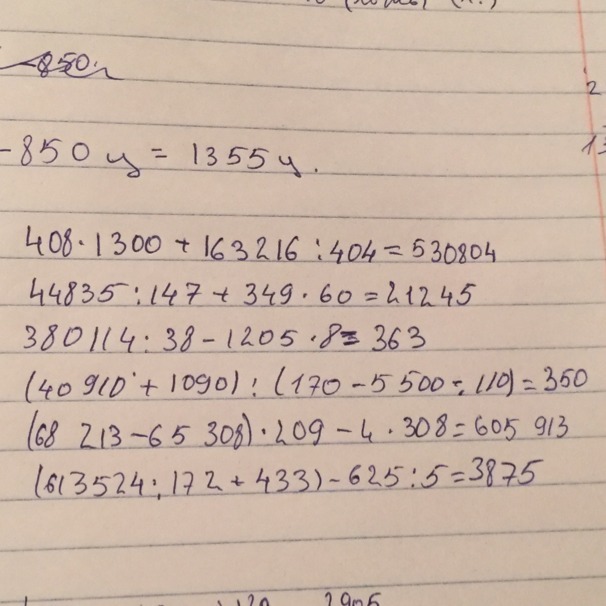 -850 ц = 1355 ц.
408·1300 + 163216 : 404 = 530804
44835 : 147 + 349 · 60 = 21245
380114 : 38 - 1205 · 8 = 363
(40 910 + 1090) : (170 - 5 500 : 110) = 350
(68 213 - 65 308) · 209 - 4 · 308 = 605 913
(613524 : 172 + 433) - 625 : 5 = 3875